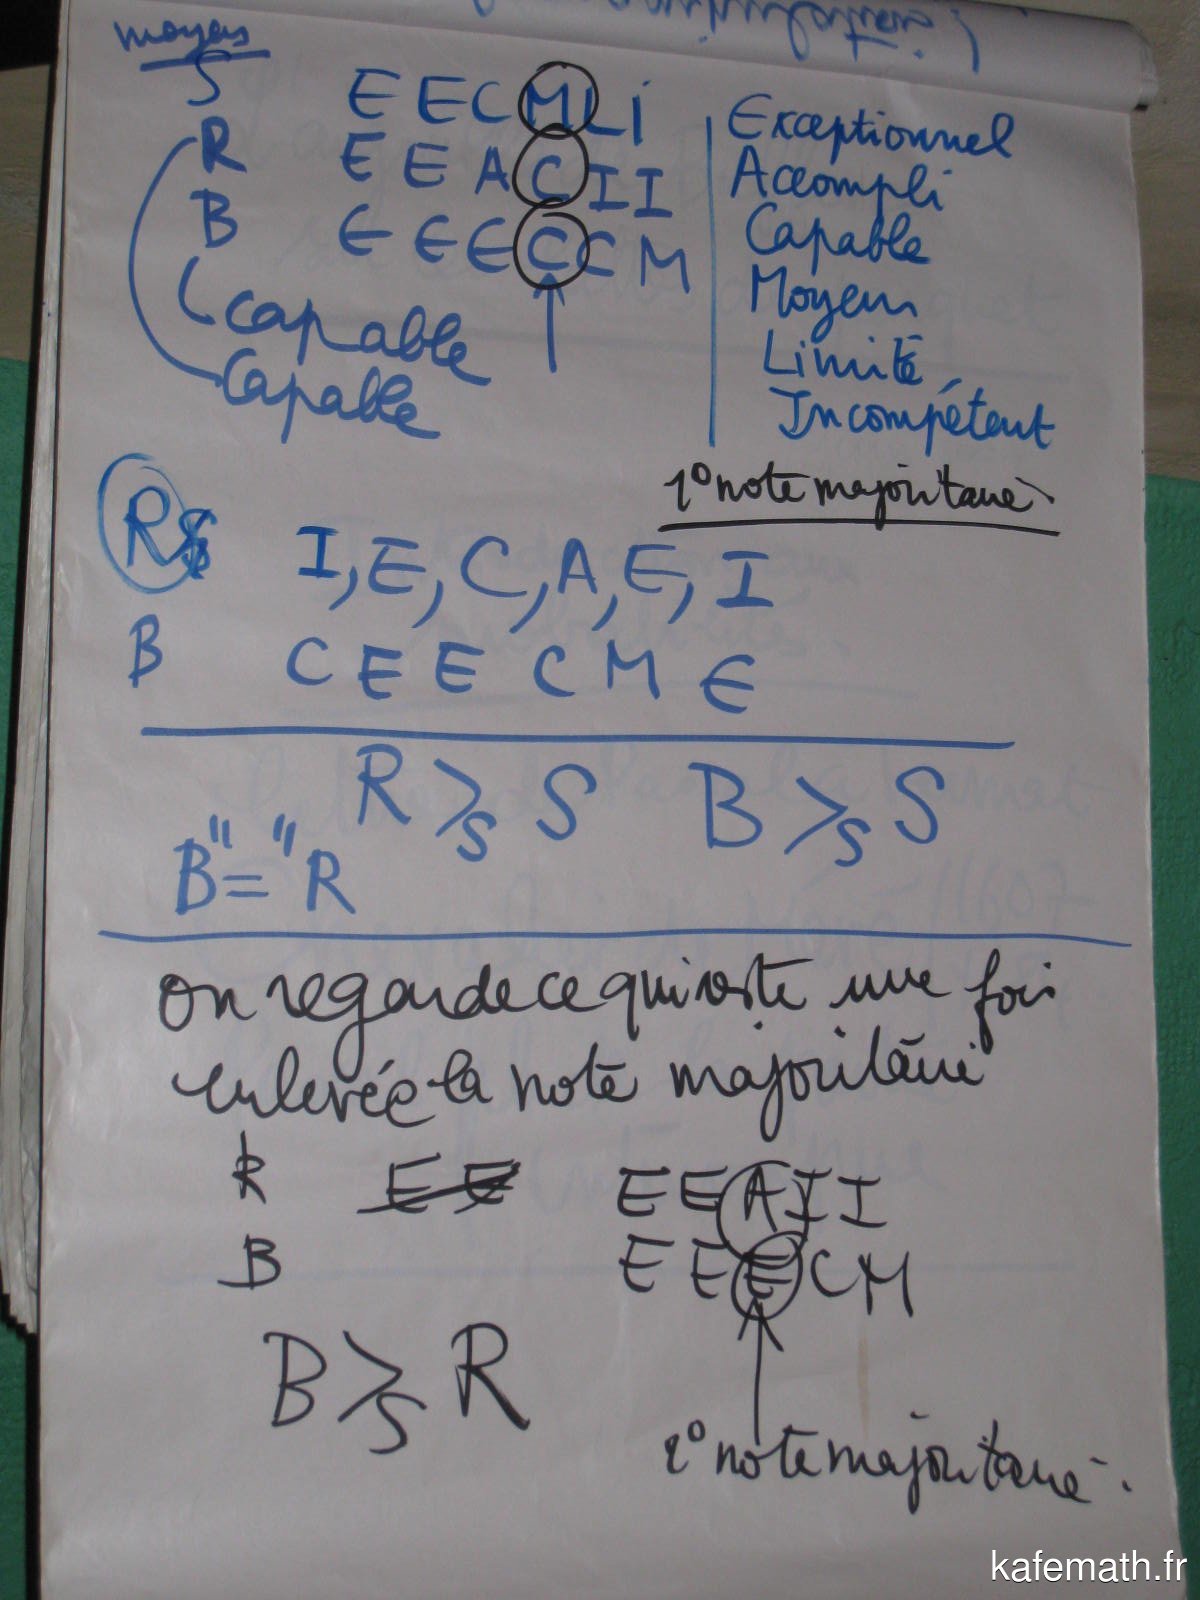 moyen
S E E C M L i
R E E A C I I
B E E E C C M
capable
capable
Exceptionnel
Accompli
Capable
Moyen
Limité
Incompétent
1° note majoritaire
R I, E, C, A, E, I
B C E E C M E
R ⩾S S B ⩾S S
B "=" R
on regarde ce qui reste une fois
enlevée la note majoritaire
R E E A I I
B E E E C M
B ⩾S R
2° note majoritaire.
kafemath.fr